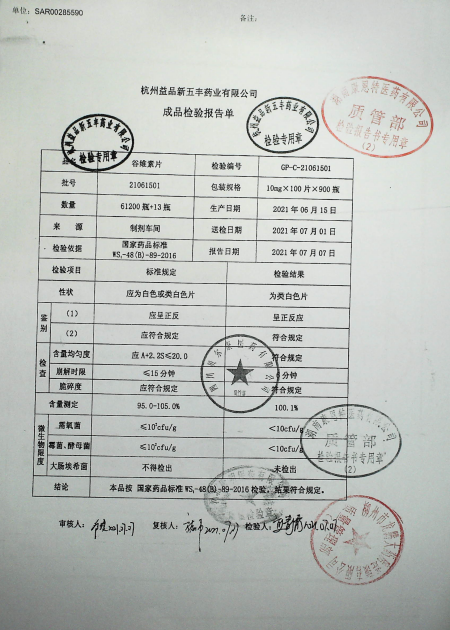 单位：SAR00285590
备注：
杭州益品新五丰药业有限公司
成品检验报告单
谷维素片 检验编号 GP-C-21061501
批号 21061501 包装规格 10mg×100片×900瓶
数量 61200瓶+13瓶 生产日期 2021年06月15日
来源 制剂车间 送检日期 2021年07月01日
检验依据 国家药品标准 WS₁-48(B)-89-2016 报告日期 2021年07月07日
检验项目 标准规定 检验结果
性状 应为白色或类白色片 为类白色片
鉴别 (1) 应呈正反 呈正反应
(2) 应符合规定 符合规定
检查 含量均匀度 应A+2.2S≤20.0 符合规定
崩解时限 ≤15分钟 分钟
脆碎度 应符合规定 符合规定
含量测定 95.0-105.0% 100.1%
微生物限度 需氧菌 ≤10³cfu/g <10cfu/g
霉菌、酵母菌 ≤10²cfu/g <10cfu/g
大肠埃希菌 不得检出 未检出
结论 本品按 国家药品标准WS₁-48(B)-89-2016检验，结果符合规定。
审核人： 复核人： 检验人：
杭州益品新五丰药业有限公司
检验专用章
杭州益品新五丰药业有限公司
检验专用章
质管部
检验报告书专用章
(2)
质管部
检验报告书专用章
(2)